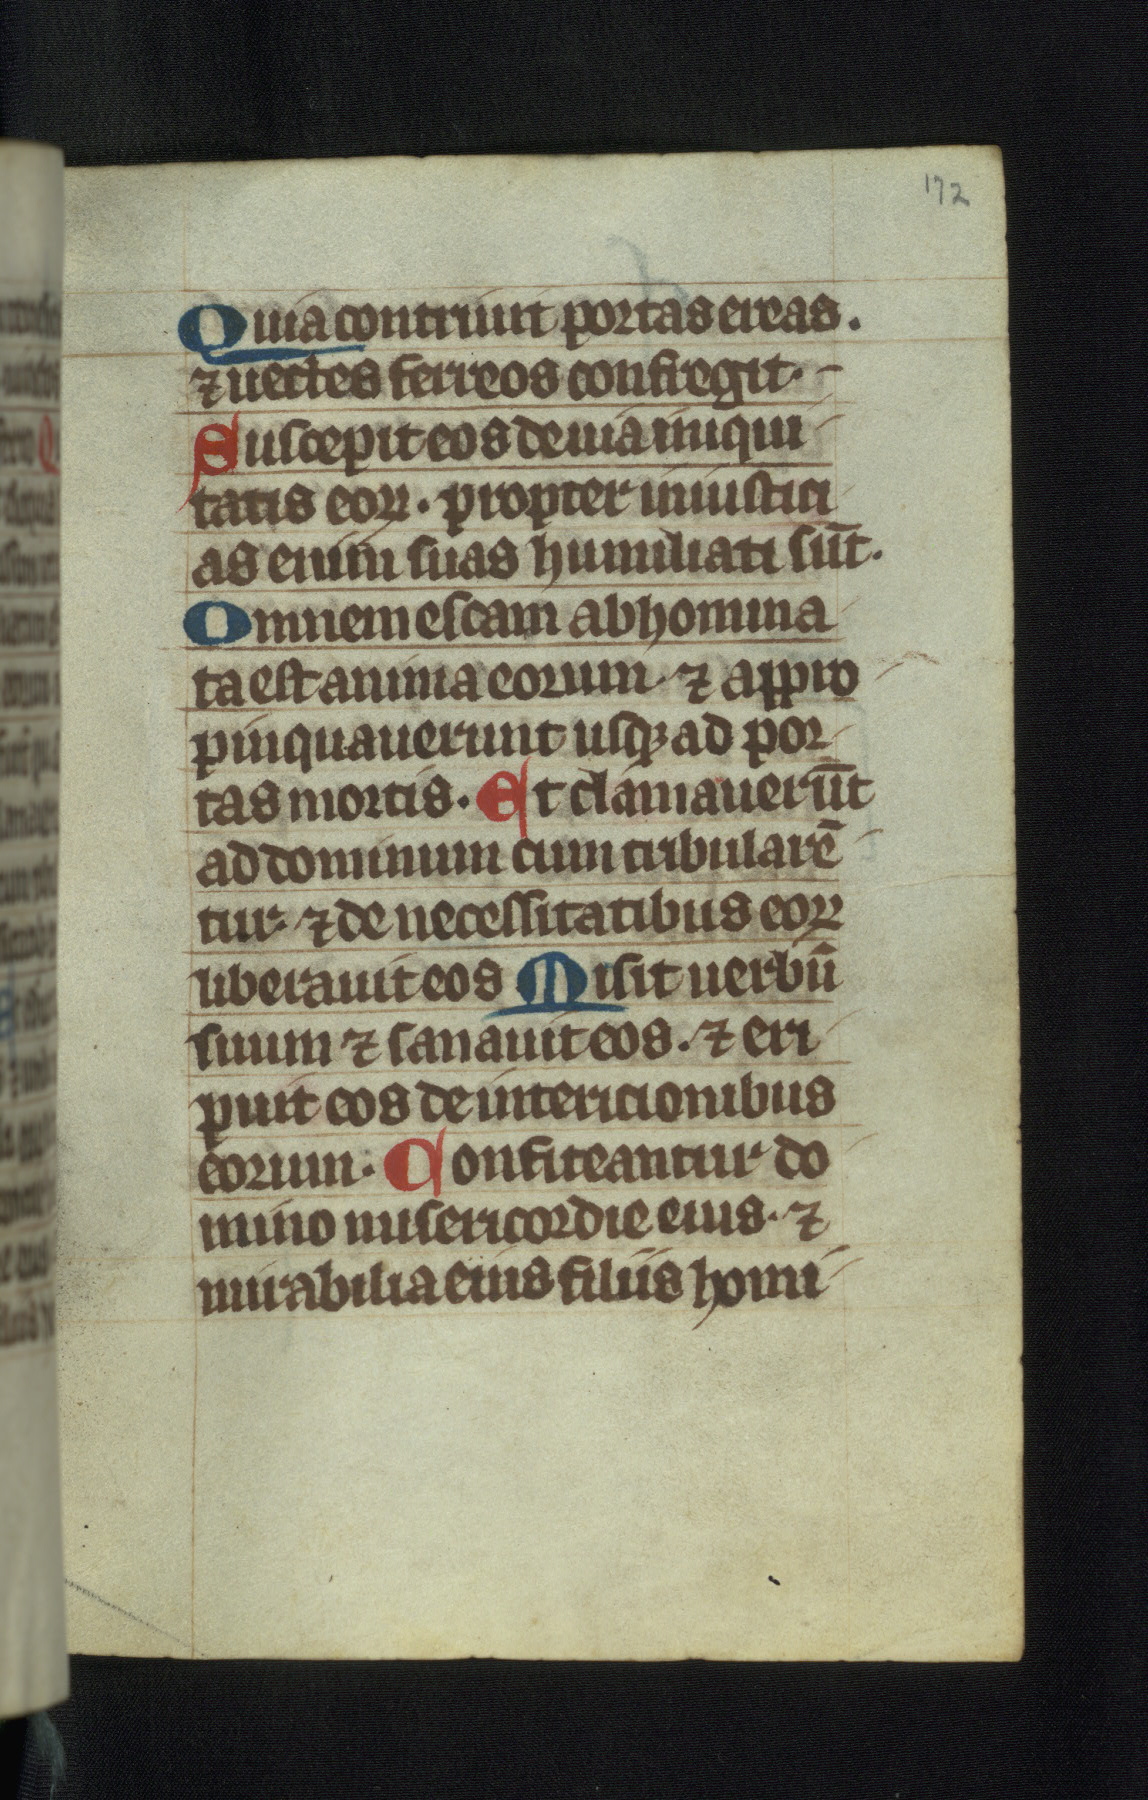 172
Quia contriuit portas ereas.
⁊ uectes ferreos confregit.
Suscepit eos de uia iniqui
tatis eoꝝ. propter iniustici
as enim suas humiliati sūt.
Omnem escam abhomina
ta est anima eorum ⁊ appro
pinquauerunt usqꝫ ad por
tas mortis. Et clamauerūt
ad dominum cum tribularē
tur ⁊ de necessitatibus eoꝝ
liberauit eos Misit uerbū
suum ⁊ sanauit eos. ⁊ eri
puit eos de intericionibus
eorum. Confiteantur do
mino misericordie eius. ⁊
mirabilia eius filiis homi